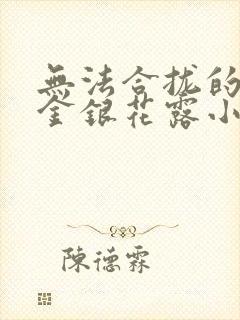 無法合拢的
金銀花露小
陳德霖